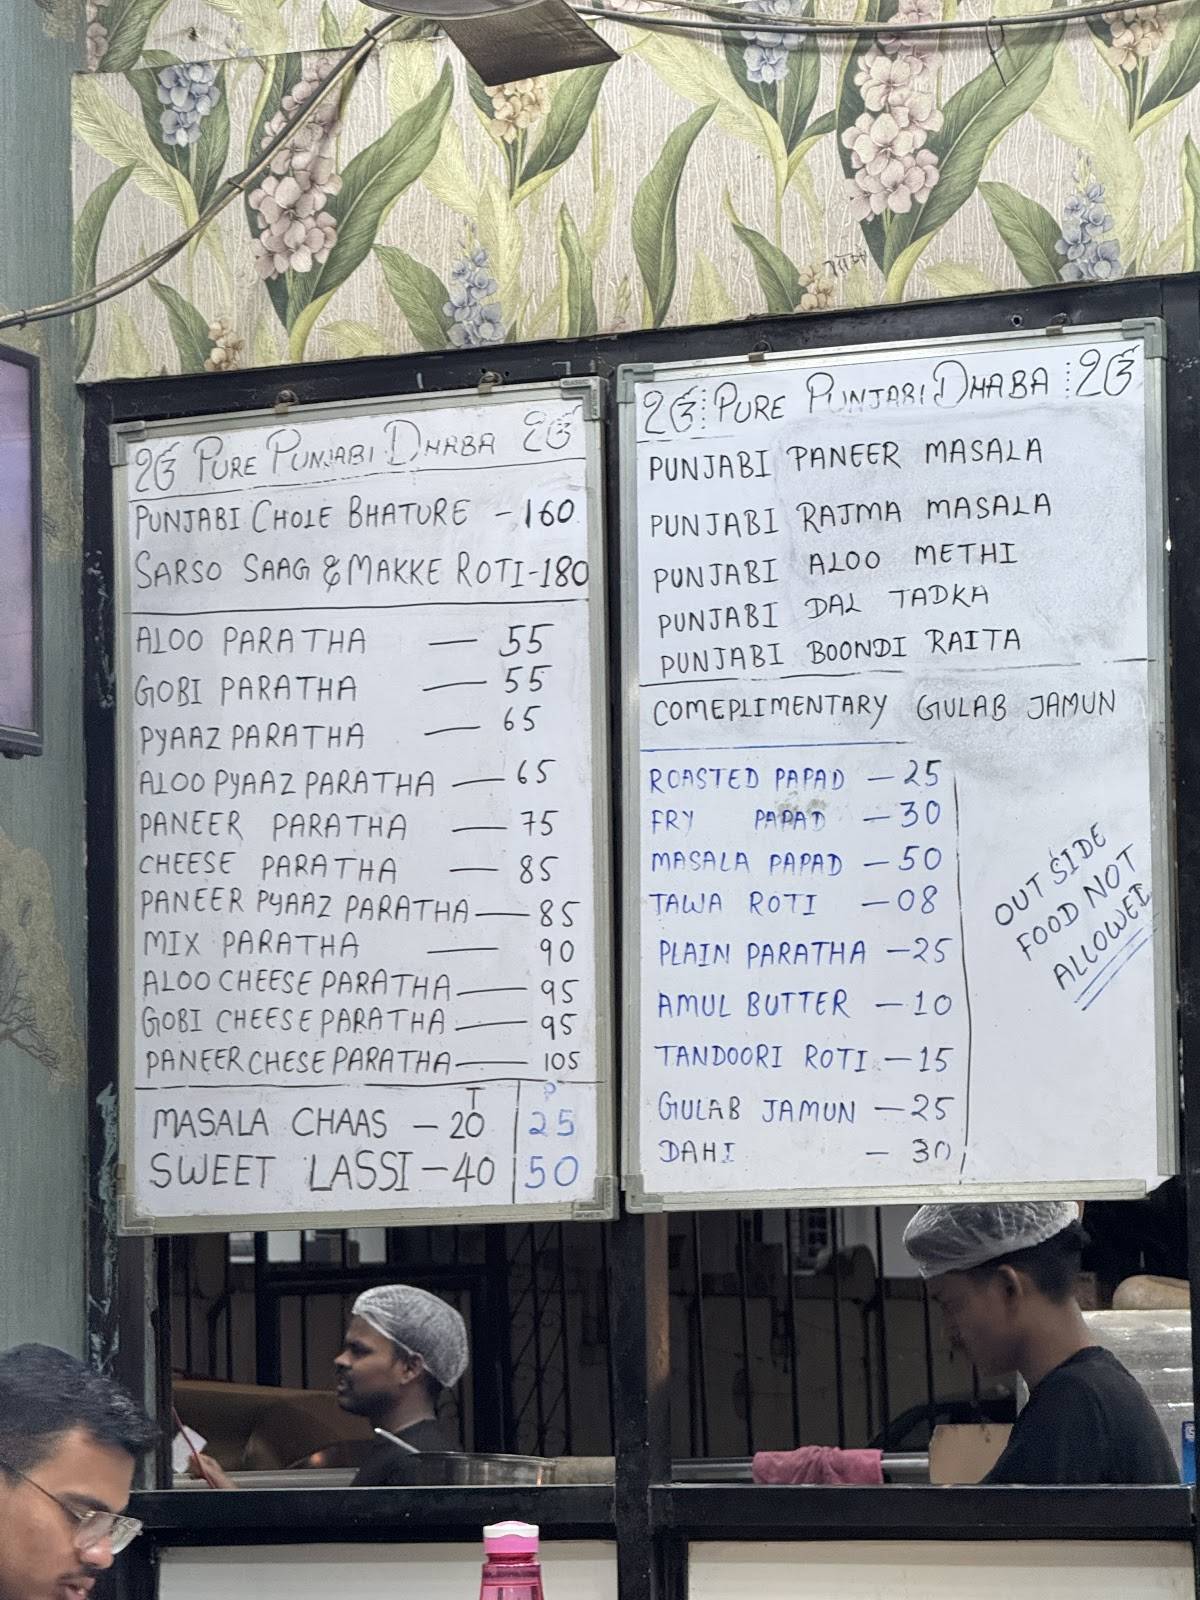 ੴ PURE PUNJABI DHABA ੴ
PUNJABI CHOLE BHATURE - 160
SARSO SAAG & MAKKE ROTI-180
ALOO PARATHA — 55
GOBI PARATHA — 55
PYAAZ PARATHA — 65
ALOO PYAAZ PARATHA — 65
PANEER PARATHA — 75
CHEESE PARATHA — 85
PANEER PYAAZ PARATHA — 85
MIX PARATHA — 90
ALOO CHEESE PARATHA — 95
GOBI CHEESE PARATHA — 95
PANEER CHESE PARATHA — 105
T P
MASALA CHAAS - 20 25
SWEET LASSI - 40 50
ੴ PURE PUNJABI DHABA ੴ
PUNJABI PANEER MASALA
PUNJABI RAJMA MASALA
PUNJABI ALOO METHI
PUNJABI DAL TADKA
PUNJABI BOONDI RAITA
COMEPLIMENTARY GULAB JAMUN
ROASTED PAPAD - 25
FRY PAPAD - 30
MASALA PAPAD - 50
TAWA ROTI - 08
PLAIN PARATHA - 25
AMUL BUTTER - 10
TANDOORI ROTI - 15
GULAB JAMUN - 25
DAHI - 30
OUT SIDE
FOOD NOT
ALLOWED